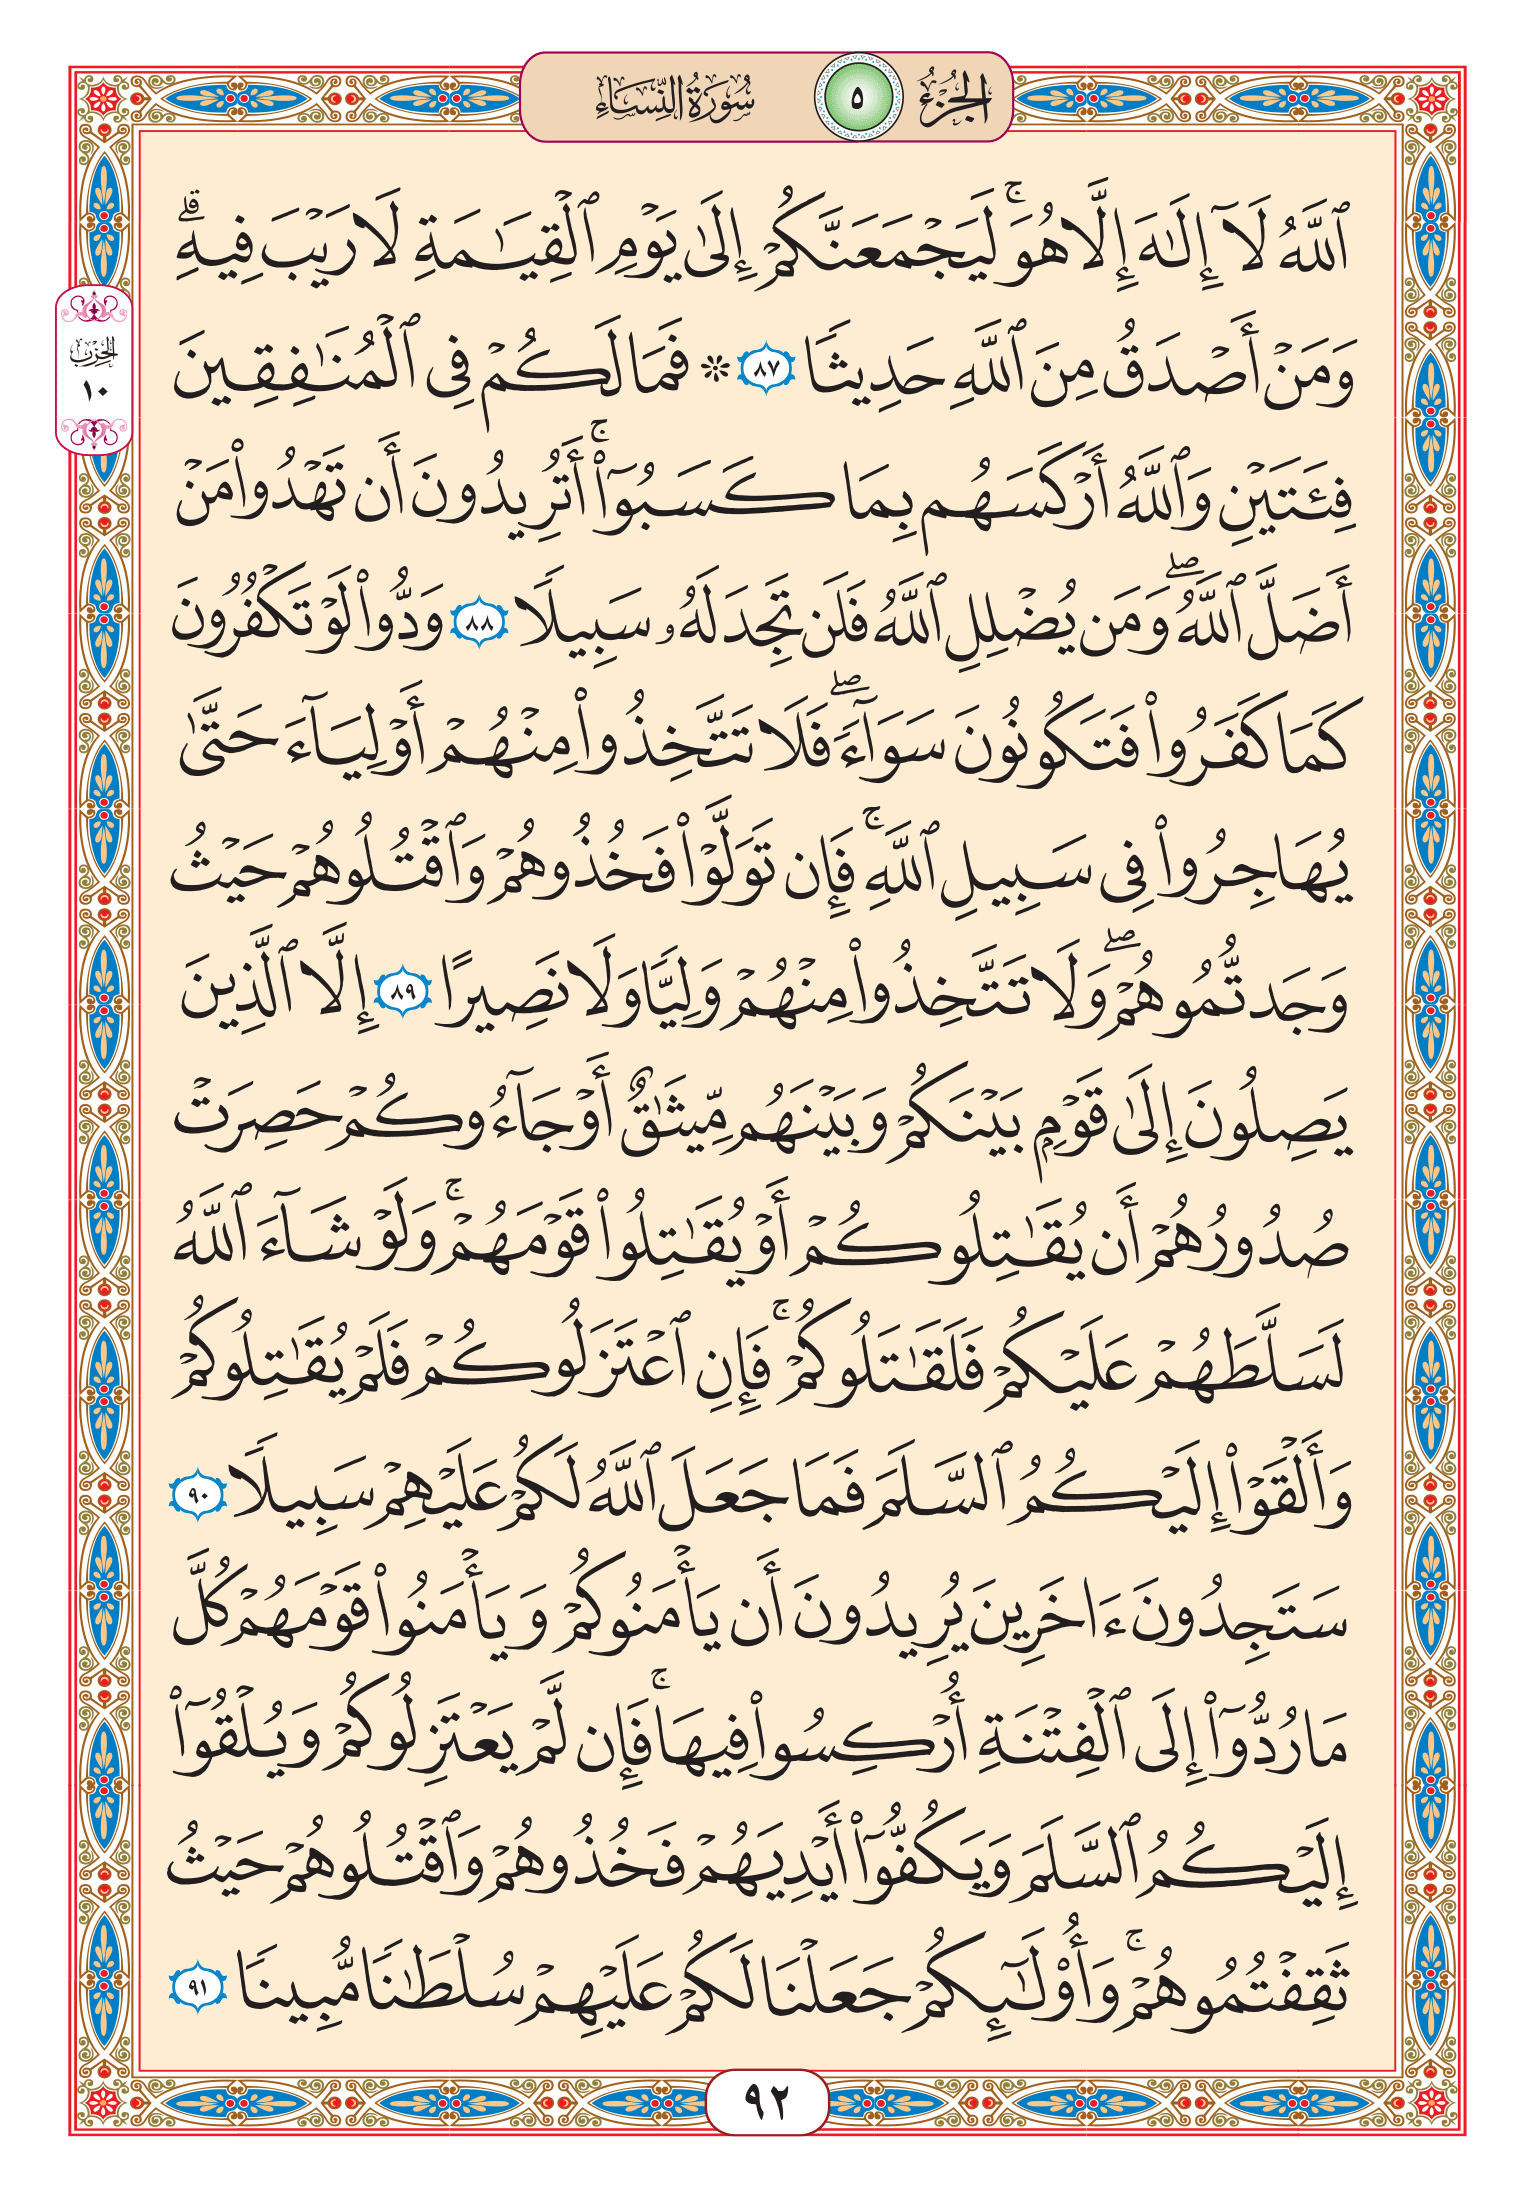 الجزء ٥ سورة النساء
ٱللَّهُ لَآ إِلَٰهَ إِلَّا هُوَۚ لَيَجْمَعَنَّكُمْ إِلَىٰ يَوْمِ ٱلْقِيَٰمَةِ لَا رَيْبَ فِيهِۗ
وَمَنْ أَصْدَقُ مِنَ ٱللَّهِ حَدِيثًا ٨٧ ۞ فَمَا لَكُمْ فِى ٱلْمُنَٰفِقِينَ
الحزب
١٠
فِئَتَيْنِ وَٱللَّهُ أَرْكَسَهُم بِمَا كَسَبُوٓا۟ۚ أَتُرِيدُونَ أَن تَهْدُوا۟ مَنْ
أَضَلَّ ٱللَّهُۖ وَمَن يُضْلِلِ ٱللَّهُ فَلَن تَجِدَ لَهُۥ سَبِيلًا ٨٨ وَدُّوا۟ لَوْ تَكْفُرُونَ
كَمَا كَفَرُوا۟ فَتَكُونُونَ سَوَآءًۖ فَلَا تَتَّخِذُوا۟ مِنْهُمْ أَوْلِيَآءَ حَتَّىٰ
يُهَاجِرُوا۟ فِى سَبِيلِ ٱللَّهِۚ فَإِن تَوَلَّوْا۟ فَخُذُوهُمْ وَٱقْتُلُوهُمْ حَيْثُ
وَجَدتُّمُوهُمْۖ وَلَا تَتَّخِذُوا۟ مِنْهُمْ وَلِيًّا وَلَا نَصِيرًا ٨٩ إِلَّا ٱلَّذِينَ
يَصِلُونَ إِلَىٰ قَوْمٍۭ بَيْنَكُمْ وَبَيْنَهُم مِّيثَٰقٌ أَوْ جَآءُوكُمْ حَصِرَتْ
صُدُورُهُمْ أَن يُقَٰتِلُوكُمْ أَوْ يُقَٰتِلُوا۟ قَوْمَهُمْۚ وَلَوْ شَآءَ ٱللَّهُ
لَسَلَّطَهُمْ عَلَيْكُمْ فَلَقَٰتَلُوكُمْۚ فَإِنِ ٱعْتَزَلُوكُمْ فَلَمْ يُقَٰتِلُوكُمْ
وَأَلْقَوْا۟ إِلَيْكُمُ ٱلسَّلَمَ فَمَا جَعَلَ ٱللَّهُ لَكُمْ عَلَيْهِمْ سَبِيلًا ٩٠
سَتَجِدُونَ ءَاخَرِينَ يُرِيدُونَ أَن يَأْمَنُوكُمْ وَيَأْمَنُوا۟ قَوْمَهُمْ كُلَّ
مَا رُدُّوٓا۟ إِلَى ٱلْفِتْنَةِ أُرْكِسُوا۟ فِيهَاۚ فَإِن لَّمْ يَعْتَزِلُوكُمْ وَيُلْقُوٓا۟
إِلَيْكُمُ ٱلسَّلَمَ وَيَكُفُّوٓا۟ أَيْدِيَهُمْ فَخُذُوهُمْ وَٱقْتُلُوهُمْ حَيْثُ
ثَقِفْتُمُوهُمْۚ وَأُو۟لَٰٓئِكُمْ جَعَلْنَا لَكُمْ عَلَيْهِمْ سُلْطَٰنًا مُّبِينًا ٩١
٩٢